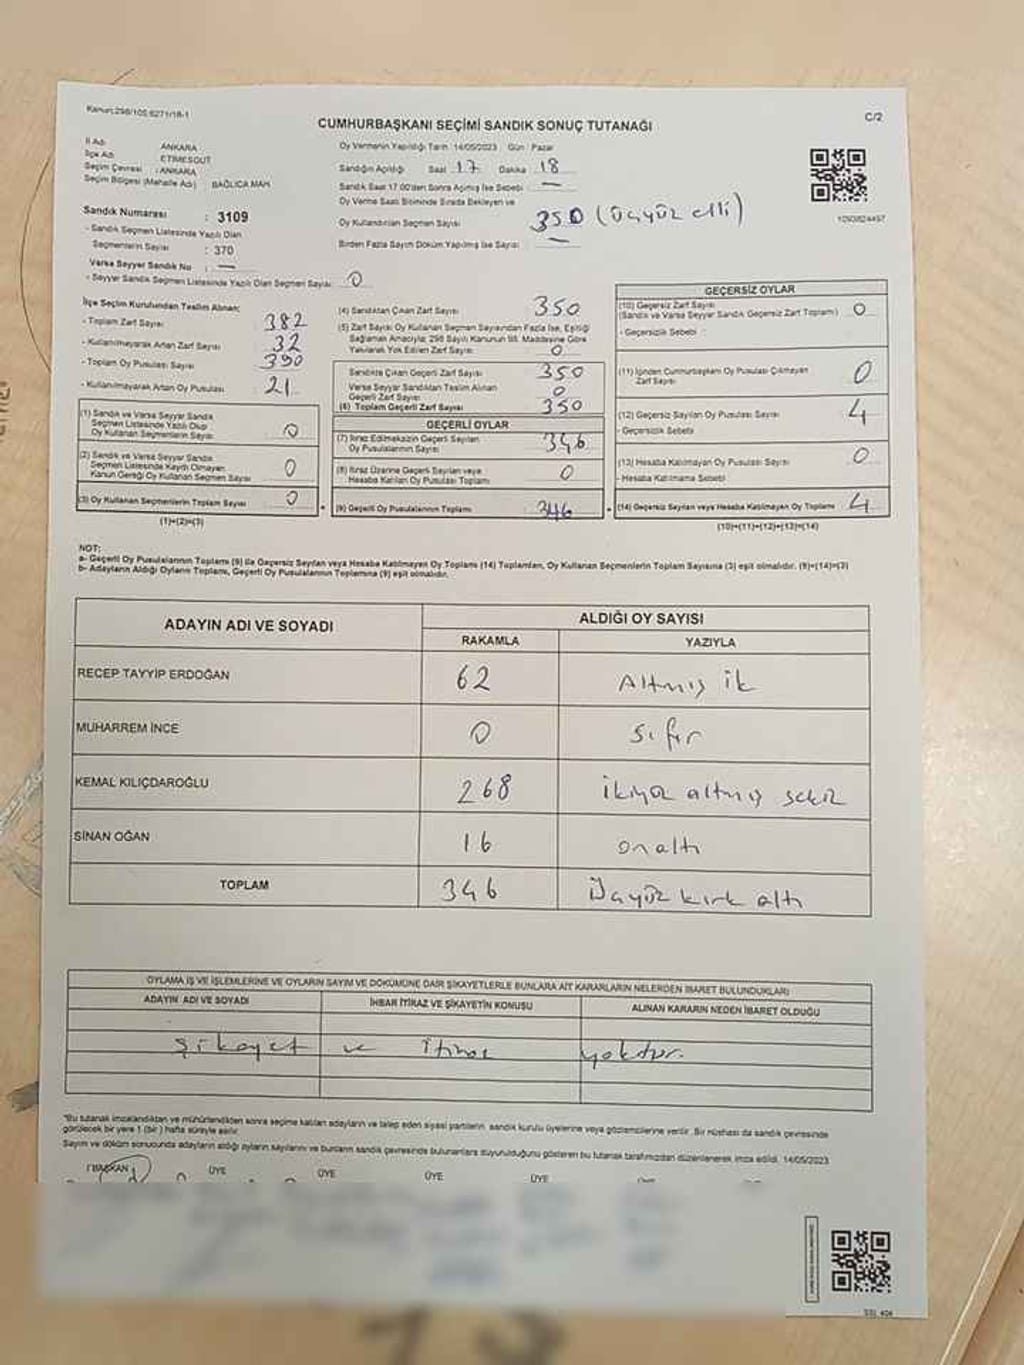 Kanun:298/105,6271/18-1
C/2
CUMHURBAŞKANI SEÇİMİ SANDIK SONUÇ TUTANAĞI
İl Adı : ANKARA
İlçe Adı : ETİMESGUT
Seçim Çevresi : ANKARA
Seçim Bölgesi (Mahalle Adı) BAĞLICA MAH.
Sandık Numarası : 3109
- Sandık Seçmen Listesinde Yazılı Olan
Seçmenlerin Sayısı : 370
Varsa Seyyar Sandık No : —
- Seyyar Sandık Seçmen Listesinde Yazılı Olan Seçmen Sayısı: 0
Oy Vermenin Yapıldığı Tarih :14/05/2023 Gün : Pazar
Sandığın Açıldığı Saat 17 Dakika 18
Sandık Saat 17.00'den Sonra Açılmış İse Sebebi : —
Oy Verme Saati Bitiminde Sırada Bekleyen ve
Oy Kullandırılan Seçmen Sayısı 350 (üçyüz elli)
Birden Fazla Sayım Döküm Yapılmış İse Sayısı : —
1093824497
İlçe Seçim Kurulundan Teslim Alınan:
- Toplam Zarf Sayısı 382
- Kullanılmayarak Artan Zarf Sayısı 32
- Toplam Oy Pusulası Sayısı 390
- Kullanılmayarak Artan Oy Pusulası 21
(1) Sandık ve Varsa Seyyar Sandık
Seçmen Listesinde Yazılı Olup
Oy Kullanan Seçmenlerin Sayısı 0
(2) Sandık ve Varsa Seyyar Sandık
Seçmen Listesinde Kaydı Olmayan
Kanun Gereği Oy Kullanan Seçmen Sayısı 0
(3) Oy Kullanan Seçmenlerin Toplam Sayısı 0
(1)+(2)=(3)
(4) Sandıktan Çıkan Zarf Sayısı 350
(5) Zarf Sayısı Oy Kullanan Seçmen Sayısından Fazla İse, Eşitliği
Sağlamak Amacıyla; 298 Sayılı Kanunun 98. Maddesine Göre
Yakılarak Yok Edilen Zarf Sayısı 0
Sandıkta Çıkan Geçerli Zarf Sayısı 350
Varsa Seyyar Sandıktan Teslim Alınan
Geçerli Zarf Sayısı 0
(6) Toplam Geçerli Zarf Sayısı 350
GEÇERLİ OYLAR
(7) İtiraz Edilmeksizin Geçerli Sayılan
Oy Pusulasının Sayısı 346
(8) İtiraz Üzerine Geçerli Sayılan veya
Hesaba Katılan Oy Pusulası Toplamı 0
(9) Geçerli Oy Pusulalarının Toplamı 346
GEÇERSİZ OYLAR
(10) Geçersiz Zarf Sayısı
(Sandık ve Varsa Seyyar Sandık Geçersiz Zarf Toplamı) 0
- Geçersizlik Sebebi
(11) İçinden Cumhurbaşkanı Oy Pusulası Çıkmayan
Zarf Sayısı 0
(12) Geçersiz Sayılan Oy Pusulası Sayısı 4
- Geçersizlik Sebebi
(13) Hesaba Katılmayan Oy Pusulası Sayısı 0
- Hesaba Katılmama Sebebi
(14) Geçersiz Sayılan veya Hesaba Katılmayan Oy Toplamı 4
(10)+(11)+(12)+(13)=(14)
NOT:
a- Geçerli Oy Pusulalarının Toplamı (9) ile Geçersiz Sayılan veya Hesaba Katılmayan Oy Toplamı (14) Toplamları, Oy Kullanan Seçmenlerin Toplam Sayısına (3) eşit olmalıdır. (9)+(14)=(3)
b- Adayların Aldığı Oyların Toplamı, Geçerli Oy Pusulalarının Toplamına (9) eşit olmalıdır.
ADAYIN ADI VE SOYADI ALDIĞI OY SAYISI
RAKAMLA YAZIYLA
RECEP TAYYİP ERDOĞAN 62 Altmış ik
MUHARREM İNCE 0 sıfır
KEMAL KILIÇDAROĞLU 268 ikiyüz altmış sekiz
SİNAN OĞAN 16 onaltı
TOPLAM 346 Üçyüz kırk altı
OYLAMA İŞ VE İŞLEMLERİNE VE OYLARIN SAYIM VE DÖKÜMÜNE DAİR ŞİKAYETLERLE BUNLARA AİT KARARLARIN NELERDEN İBARET BULUNDUKLARI
ADAYIN ADI VE SOYADI İHBAR İTİRAZ VE ŞİKAYETİN KONUSU ALINAN KARARIN NEDEN İBARET OLDUĞU
şikayet ve itiraz yoktur.
*Bu tutanak imzalandıktan ve mühürlendikten sonra seçime katılan adayların ve talep eden siyasi partilerin, sandık kurulu üyelerine veya gözlemcilerine verilir. Bir nüshası da sandık çevresinde
görülecek bir yere 1 (bir) hafta süreyle asılır.
Sayım ve döküm sonucunda adayların aldığı oyların sayılarını ve bunların sandık çevresinde bulunanlara duyurulduğunu gösteren bu tutanak tarafımızdan düzenlenerek imza edildi. 14/05/2023
BAŞKAN ÜYE ÜYE ÜYE ÜYE